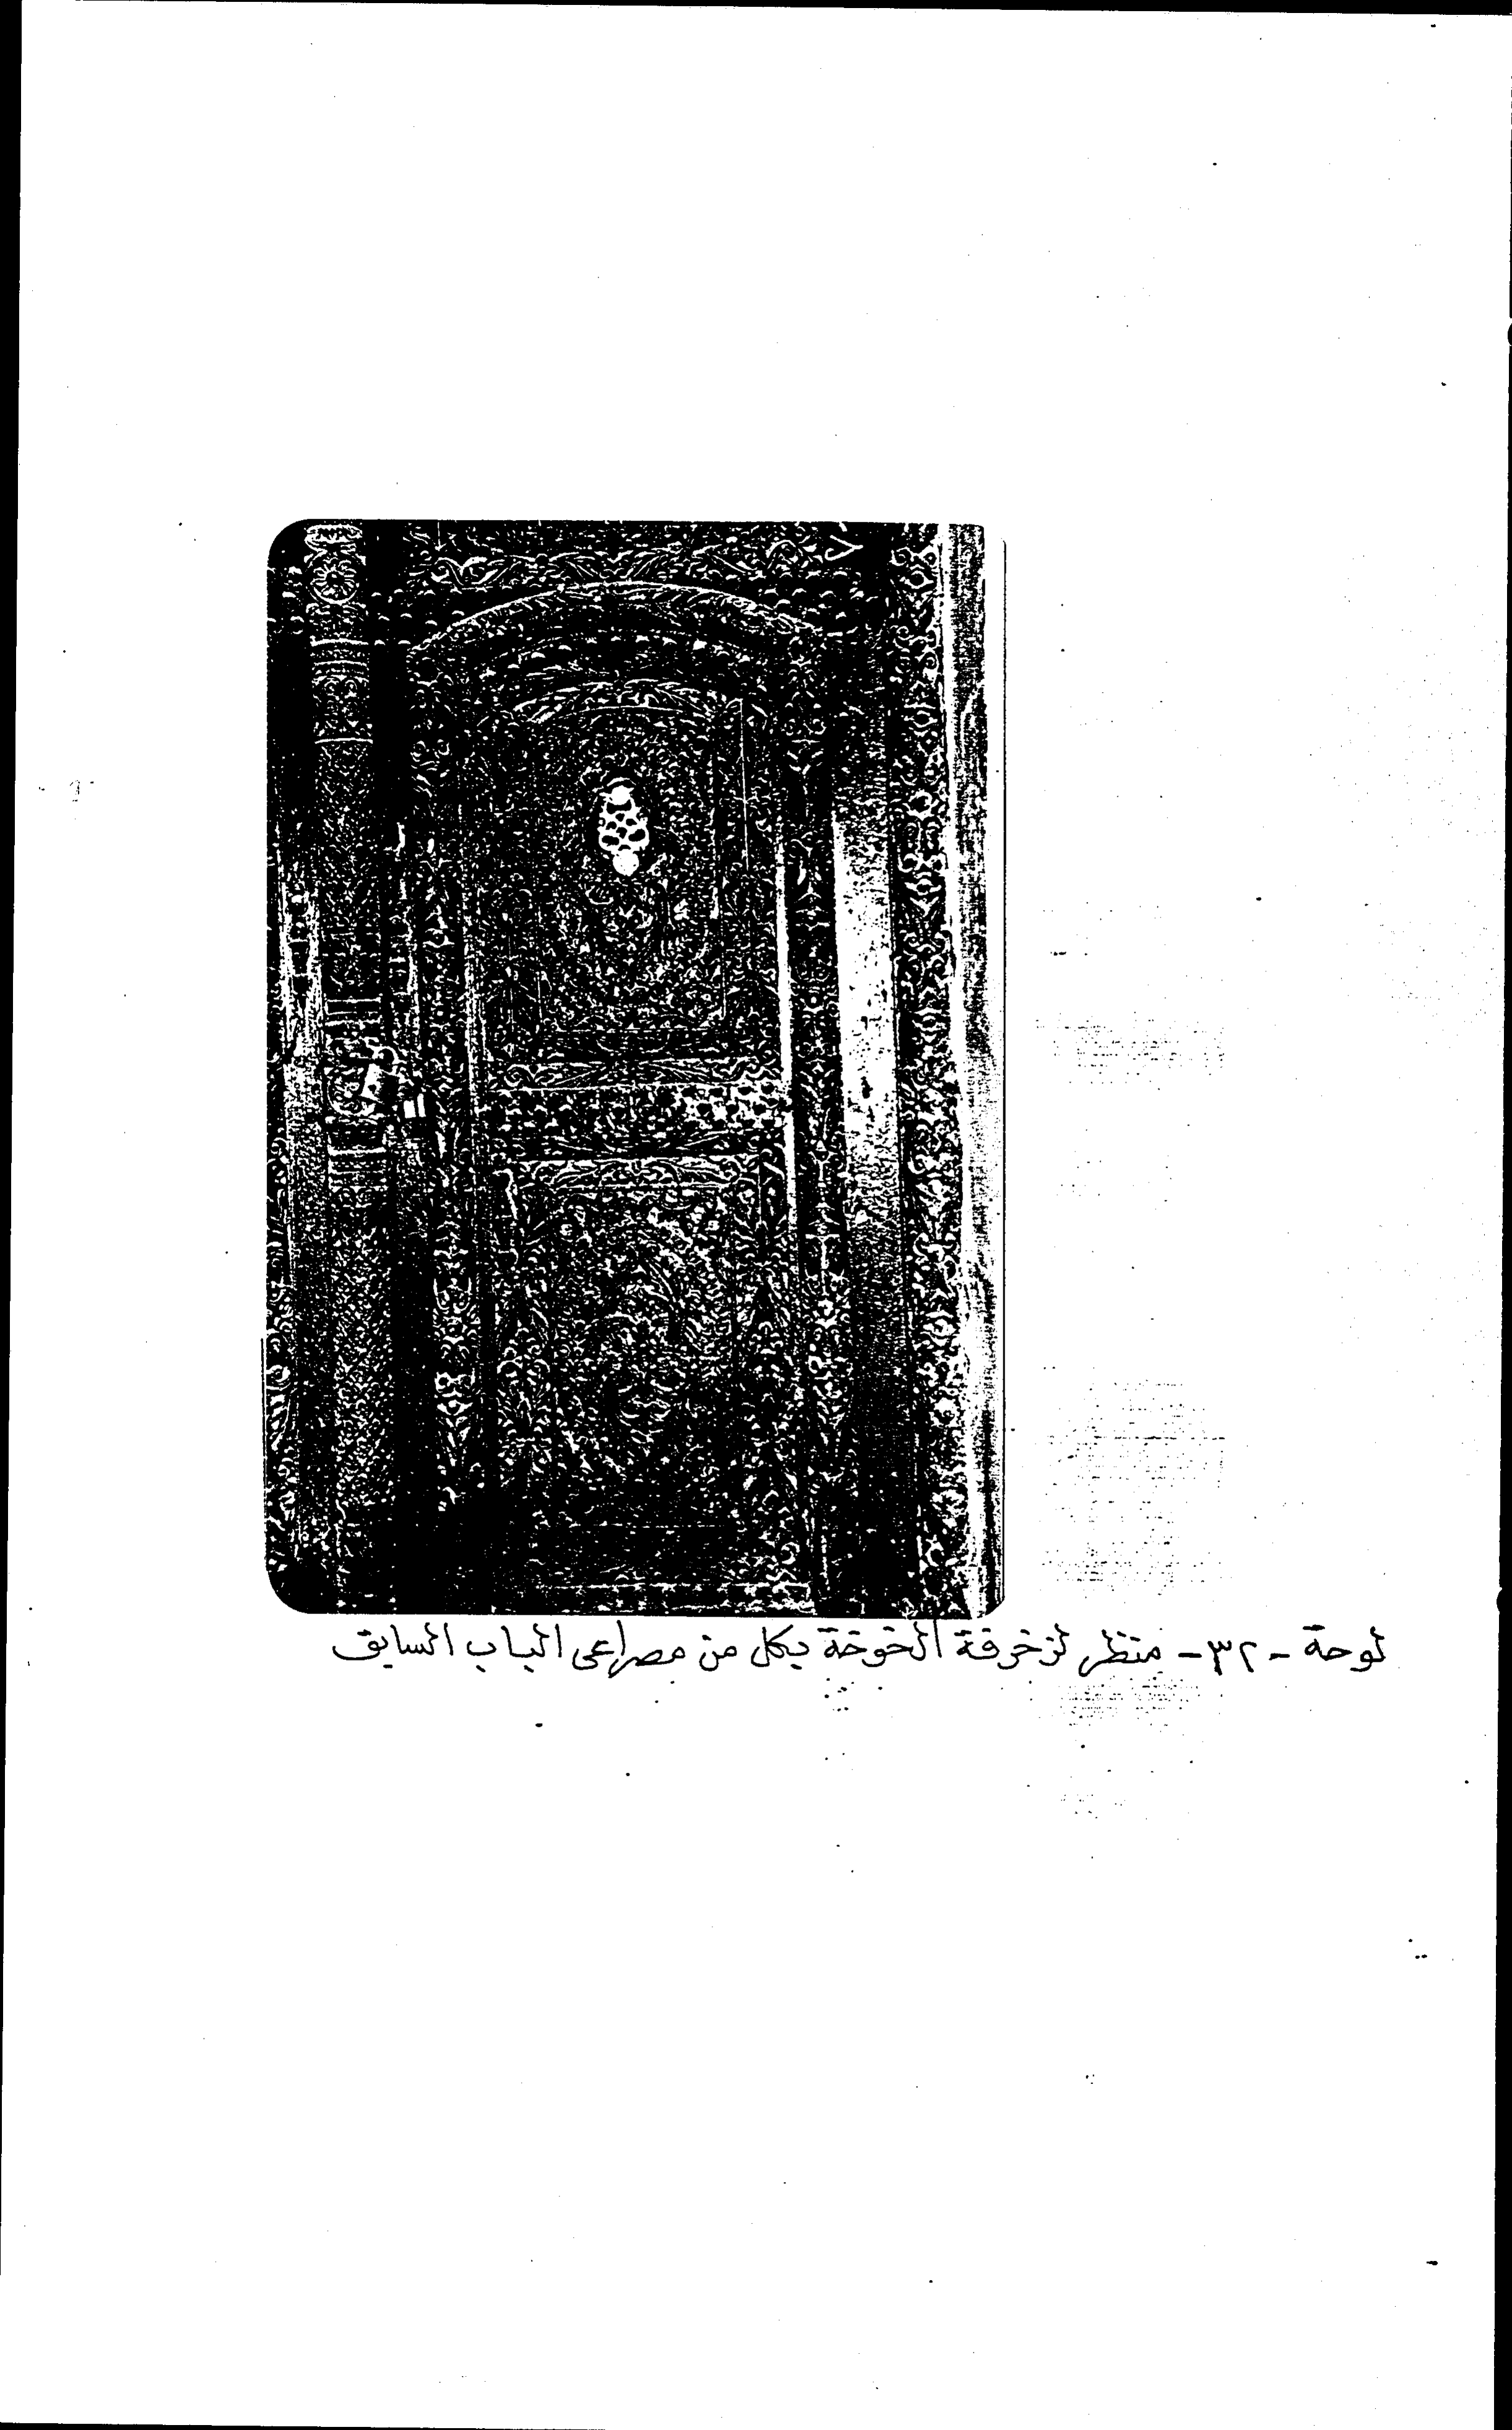 لوحة - ٣٢ - منظر لزخرفة الخوخة بكل من مصراعى الباب السابق